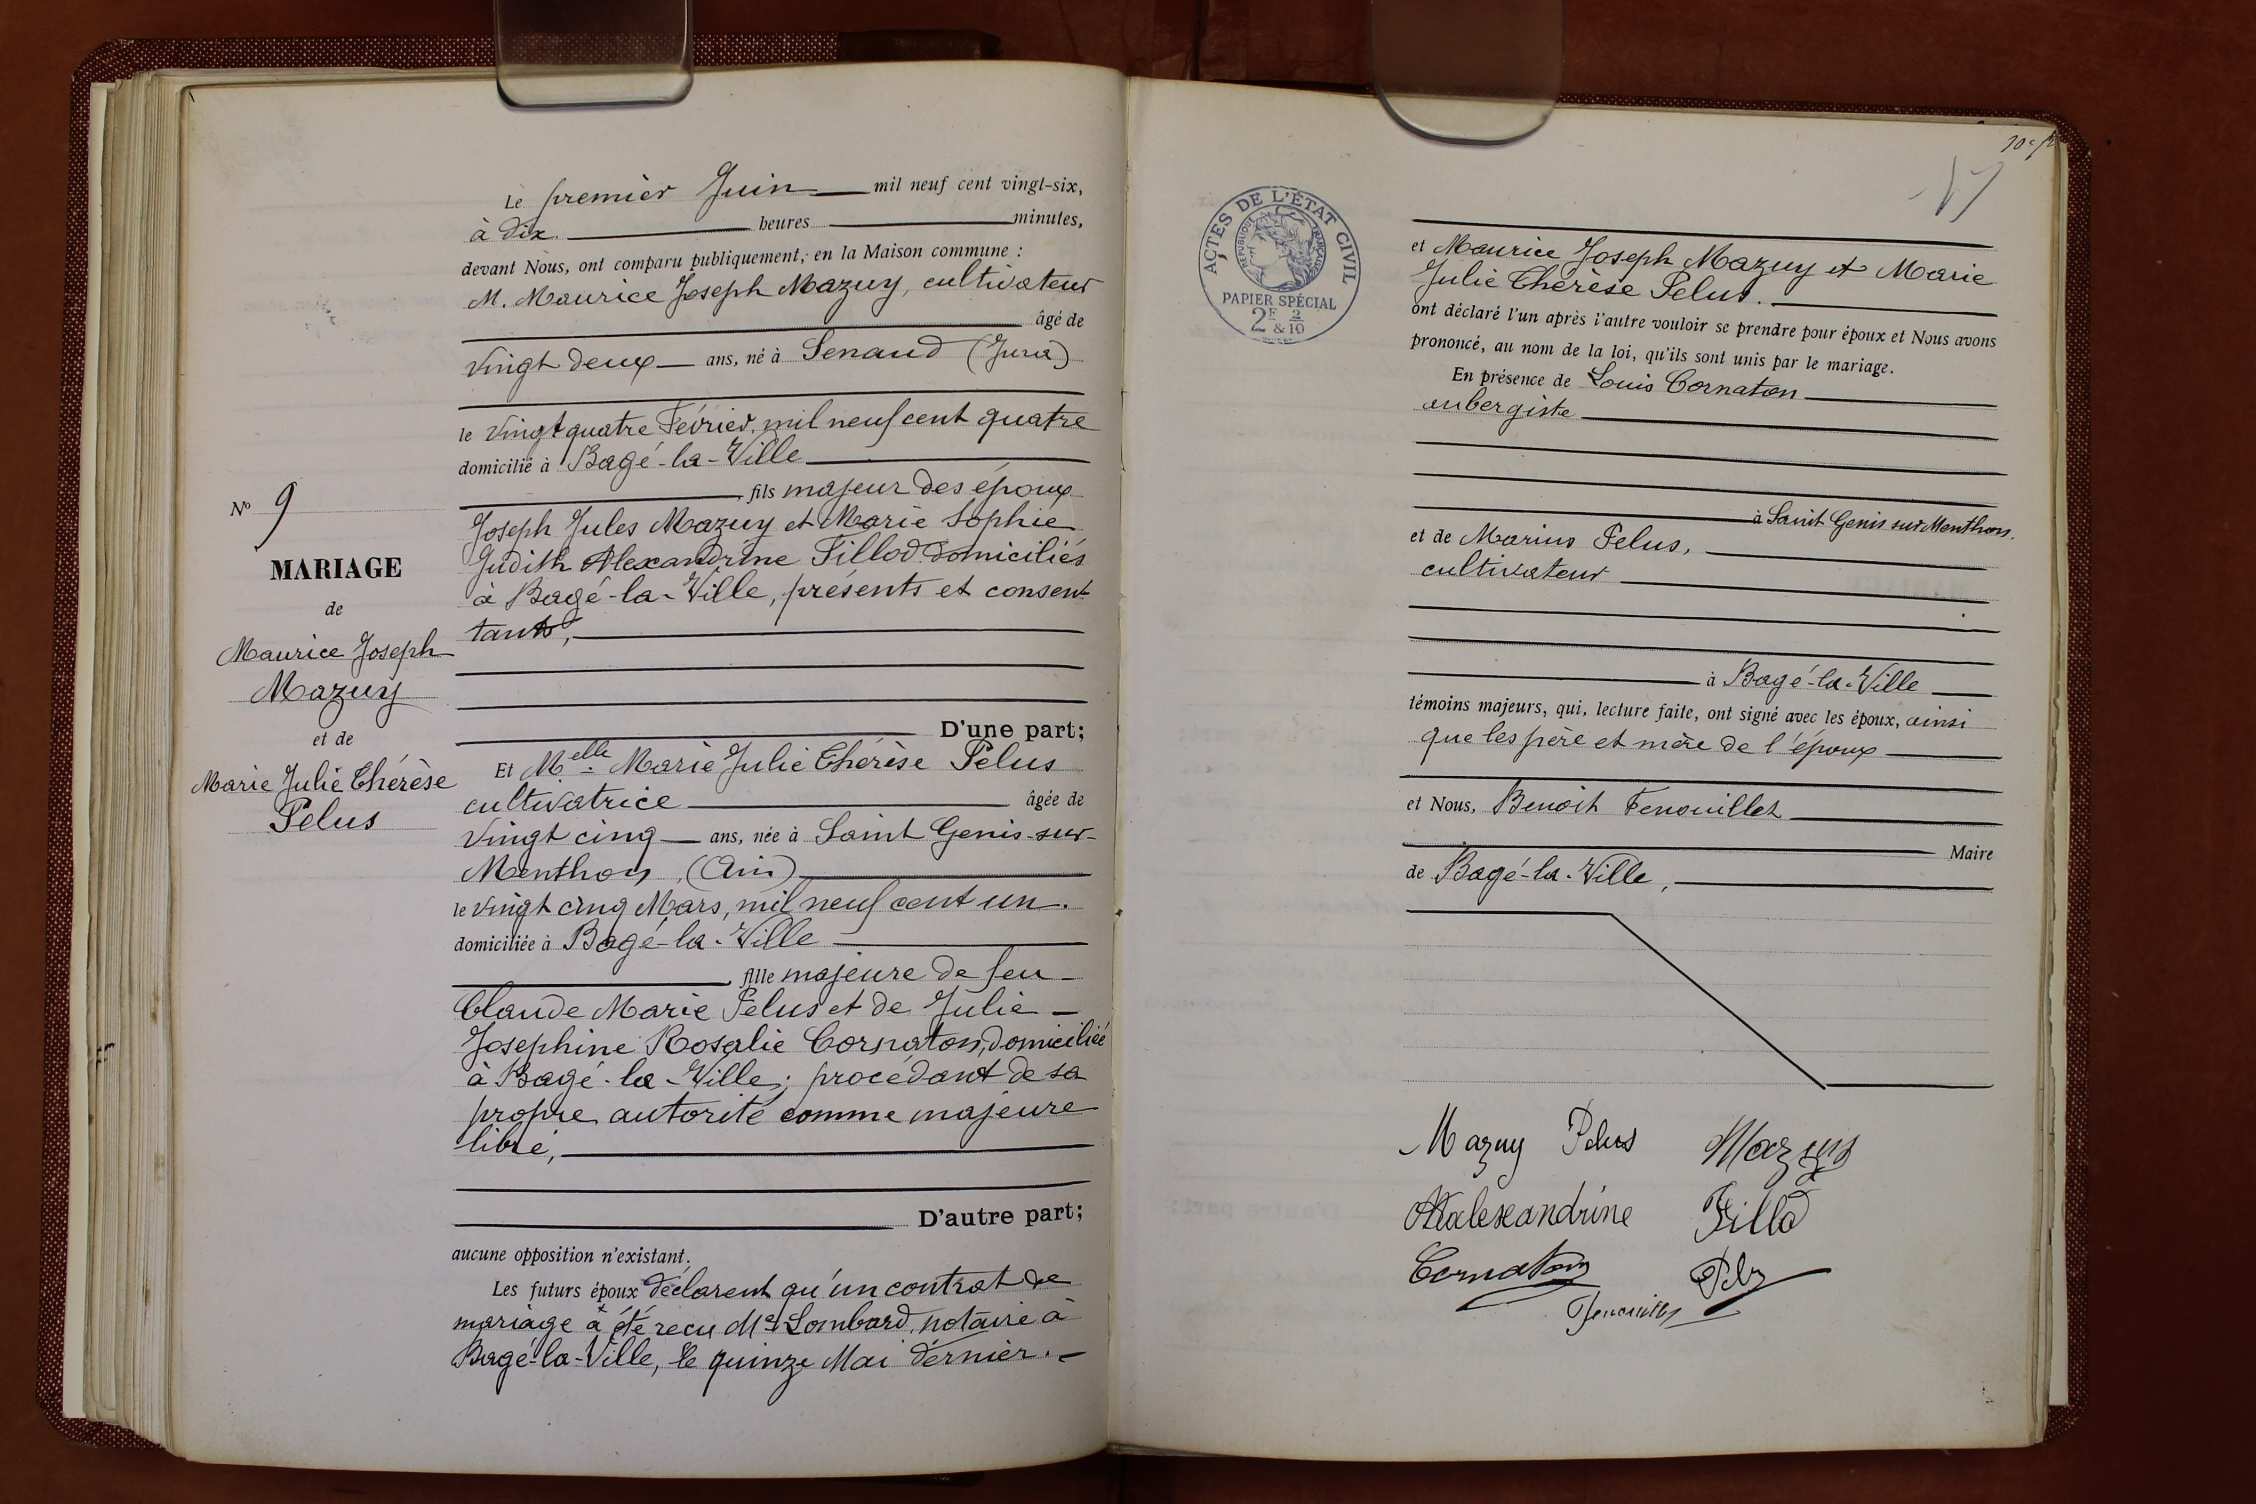 Le premier Juin mil neuf cent vingt-six,
à dix heures minutes,
devant Nous, ont comparu publiquement, en la Maison commune :
M. Maurice Joseph Mazuy, cultivateur
âgé de
vingt deux ans, né à Senaud (Jura)
le vingt quatre Février, mil neuf cent quatre
domicilié à Bagé-la-Ville
fils majeur des époux
Joseph Jules Mazuy et Marie Sophie
Judith Alexandrine Fillod domiciliés
à Bagé-la-Ville, présents et consen-
tants,
D'une part;
Nº 9
MARIAGE
de
Maurice Joseph
Mazuy
et de
Marie Julie Thérèse
Pelus
Et Melle Marie Julie Thérèse Pelus
cultivatrice âgée de
vingt cinq ans, née à Saint Genis-sur-
Menthon, (Ain)
le vingt cinq Mars, mil neuf cent un.
domiciliée à Bagé-la-Ville
fille majeure de feu
Claude Marie Pelus et de Julie
Josephine Rosalie Cornaton, domiciliée
à Bagé-la-Ville; procédant de sa
propre autorité comme majeure
libre,
D'autre part;
aucune opposition n'existant.
Les futurs époux déclarent qu'un contrat de
mariage a été recu Me Lombard, notaire à
Bagé-la-Ville, le quinze Mai dernier.
ACTES DE L'ÉTAT CIVIL
RÉPUBLIQUE FRANÇAISE
PAPIER SPÉCIAL
2F & 2/10
et Maurice Joseph Mazuy et Marie
Julie Thérèse Pelus.
ont déclaré l'un après l'autre vouloir se prendre pour époux et Nous avons
prononcé, au nom de la loi, qu'ils sont unis par le mariage.
En présence de Louis Cornaton
aubergiste
à Saint Genis sur Menthon.
et de Marius Pelus,
cultivateur
à Bagé-la-Ville
témoins majeurs, qui, lecture faite, ont signé avec les époux, ainsi
que les père et mère de l'époux
et Nous, Benoit Fenouillet
Maire
de Bagé-la-Ville,
Mazuy Pelus Mazuy
Fillod
Cornaton
Fenouillet